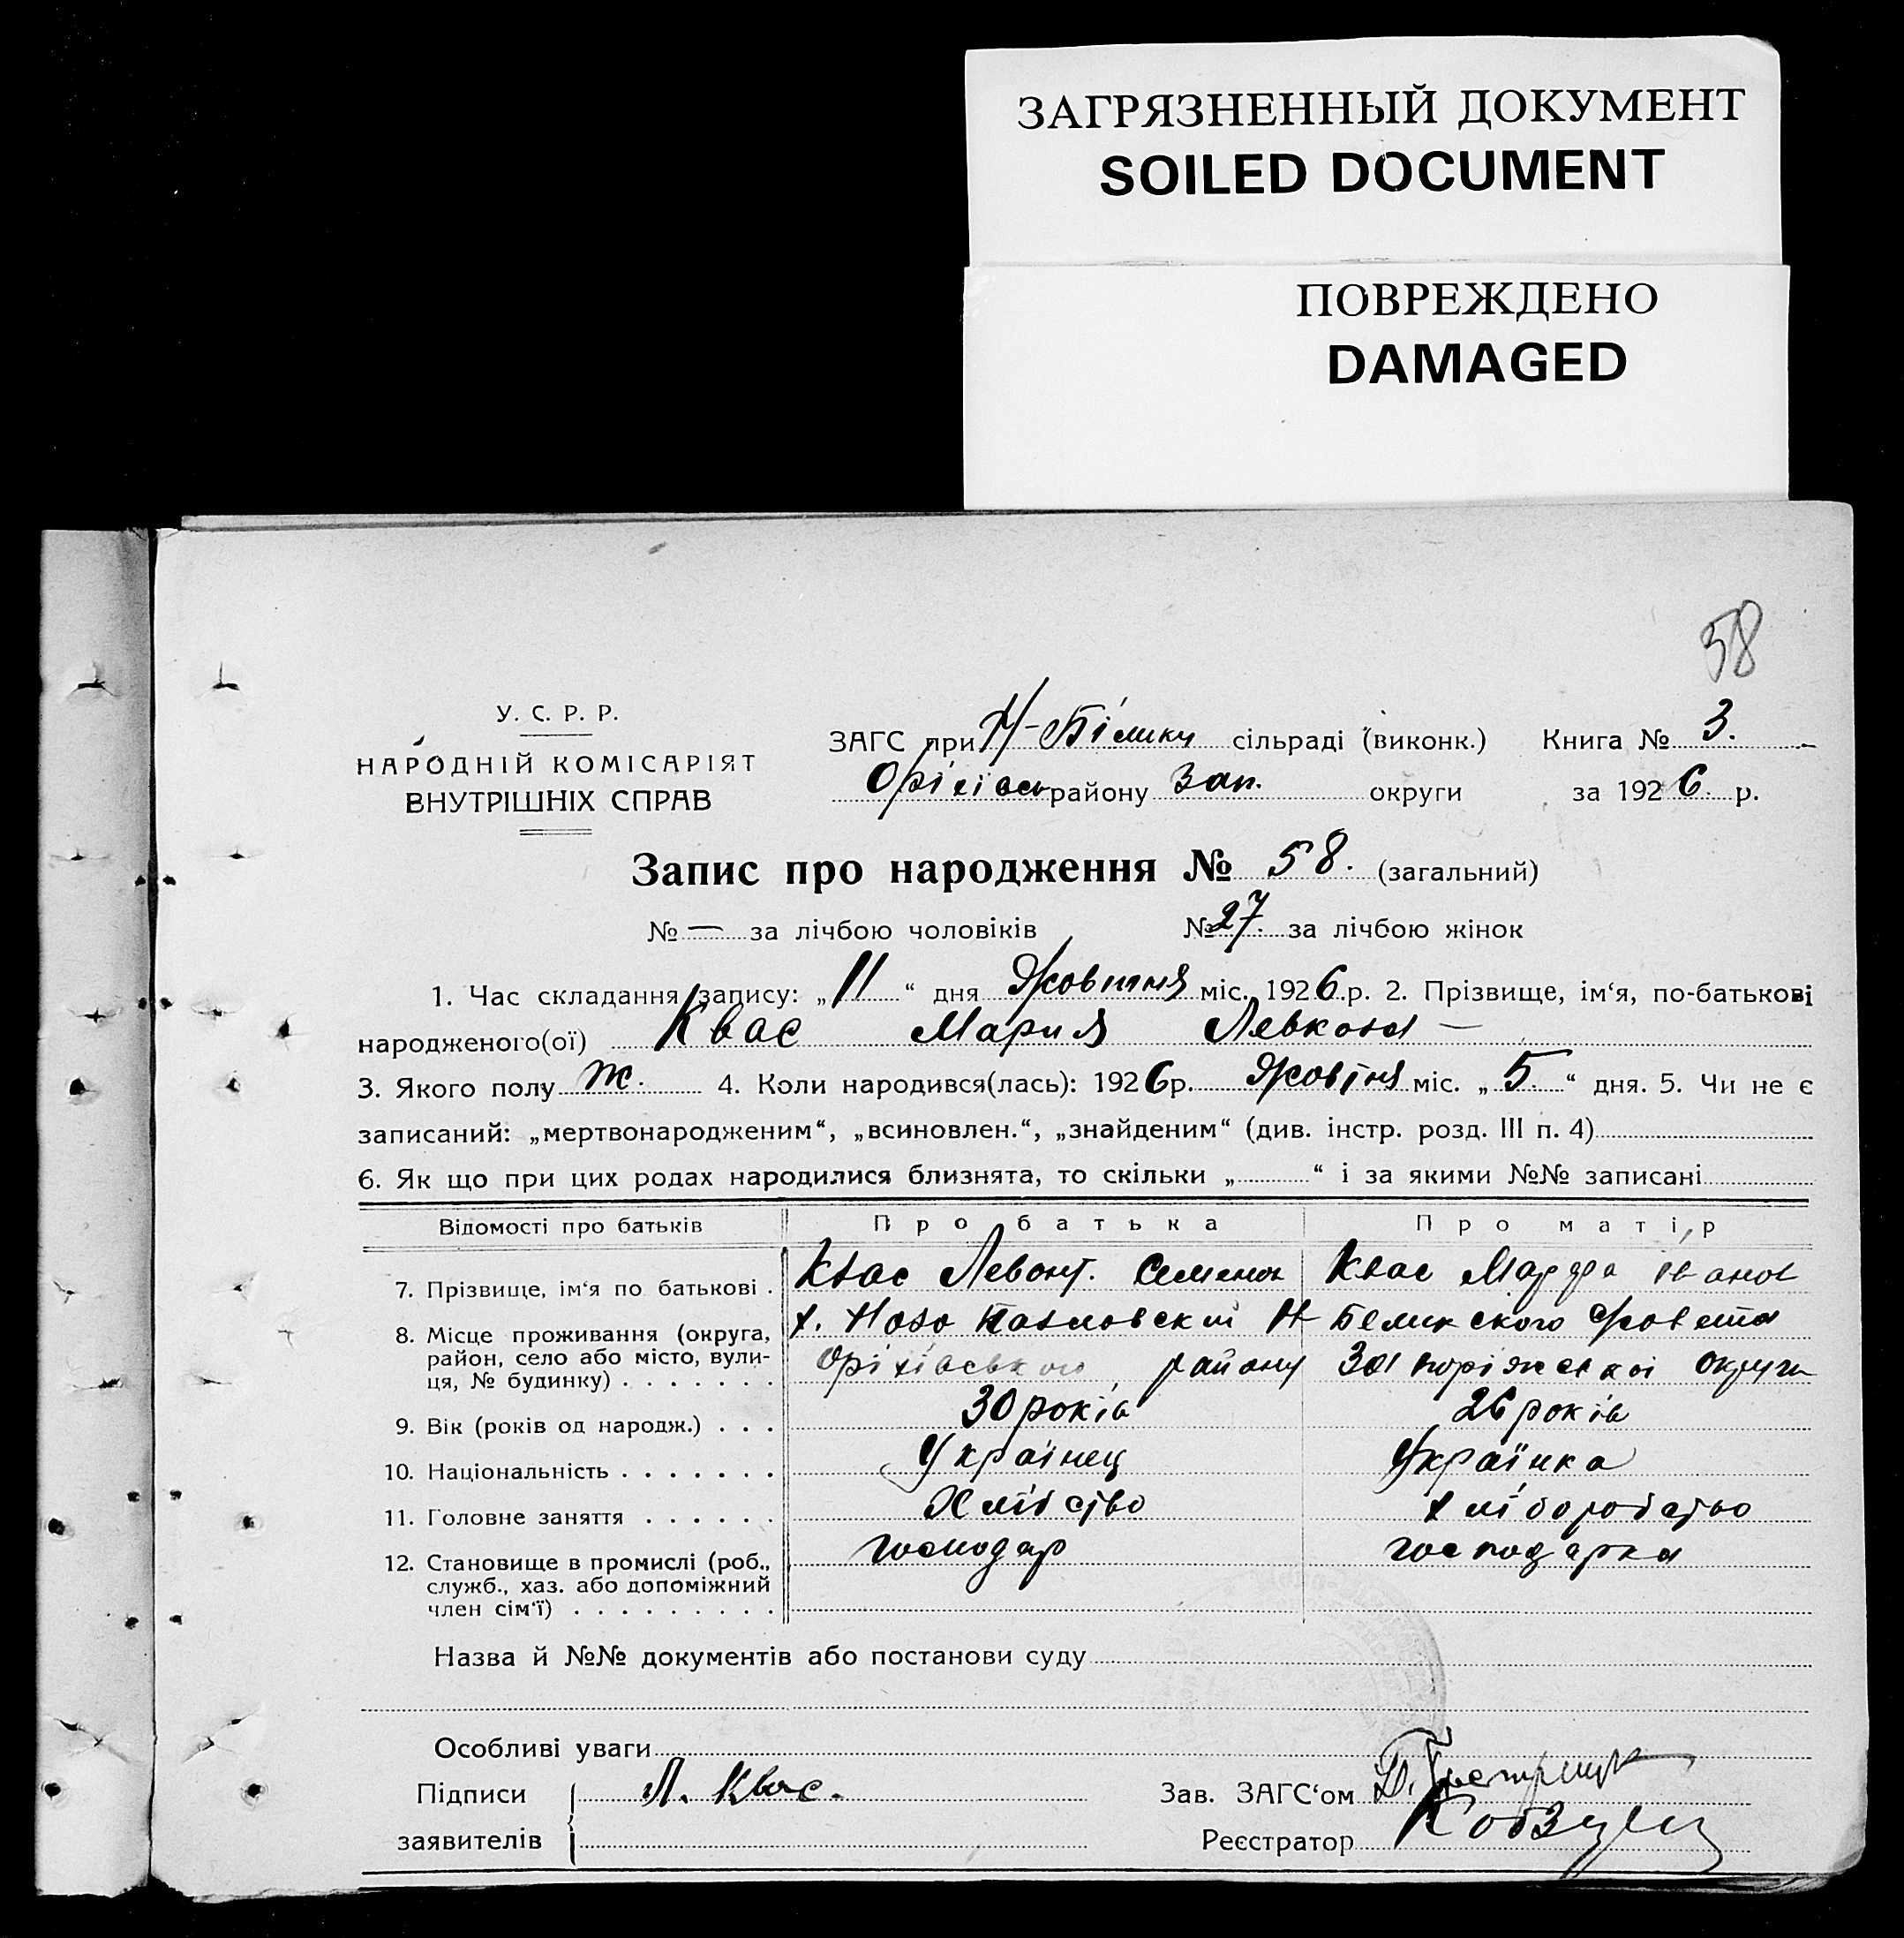 ЗАГРЯЗНЕННЫЙ ДОКУМЕНТ
SOILED DOCUMENT
ПОВРЕЖДЕНО
DAMAGED
58
У. С. Р. Р.
НАРОДНІЙ КОМІСАРІЯТ
ВНУТРІШНІХ СПРАВ
ЗАГС при Н-Білики сільраді (виконк.) Книга № 3.
Оріхівськ району Зап. округи за 1926 р.
Запис про народження № 58. (загальний)
№ — за лічбою чоловіків № 27. за лічбою жінок
1. Час складання запису: „11“ дня Жовтня міс. 1926 р. 2. Прізвище, ім‘я, по-батькові
народженого(ої) Квас Мария Левкова —
3. Якого полу ж. 4. Коли народився(лась): 1926 р. Жовтня міс. „5.“ дня. 5. Чи не є
записаний: „мертвонародженим“, „всиновлен.“, „знайденим“ (див. інстр. розд. III п. 4)
6. Як що при цих родах народилися близнята, то скільки „ “ і за якими №№ записані
Відомості про батьків Про батька Про матір
7. Прізвище, ім‘я по батькові . Квас Левонт. Семенов Квас Марфа Иванов
8. Місце проживання (округа, х. Ново Павловский Н-Беликского
район, село або місто, вули- Оріхівського району Запоріжської округи
ця, № будинку) . . . . . . .
9. Вік (років од народж.) . . . 30 років 26 років
10. Національність . . . . . . . Украінец Українка
11. Головне заняття . . . . . . Хлібство хліборобство
12. Становище в промислі (роб., господар господарка
служб., хаз. або допоміжний
член сім‘ї) . . . . . . . . .
Назва й №№ документів або постанови суду
Особливі уваги
Підписи Л. Квас. Зав. ЗАГС‘ом
заявителів Реєстратор